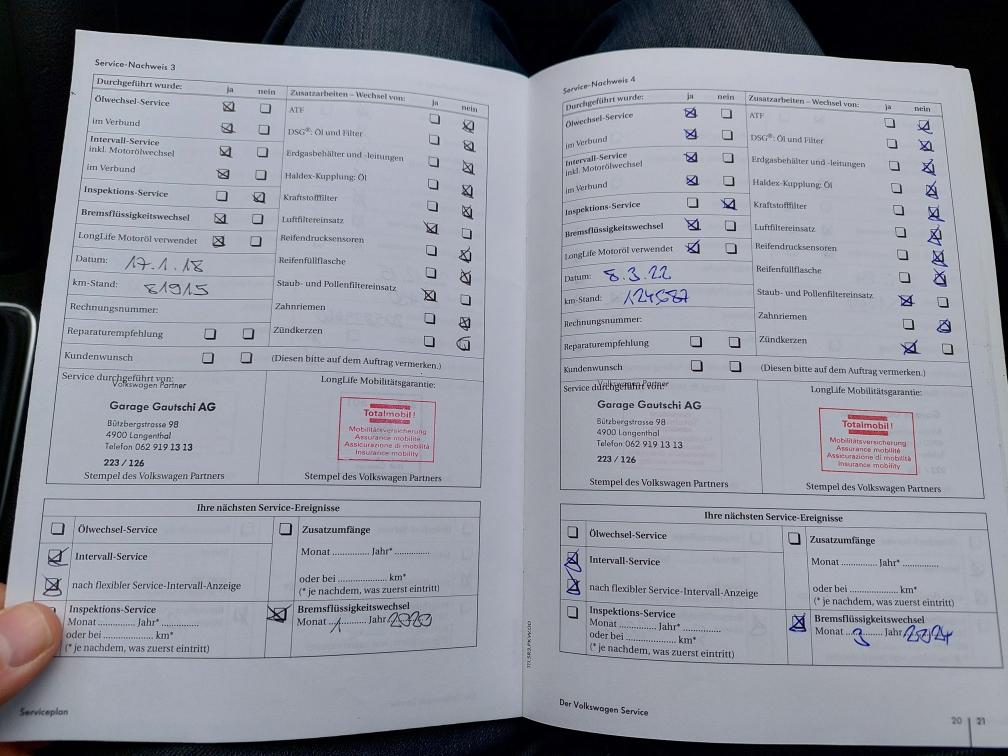 Service-Nachweis 3
Durchgeführt wurde: ja nein
Ölwechsel-Service
im Verbund
Intervall-Service
inkl. Motorölwechsel
im Verbund
Inspektions-Service
Bremsflüssigkeitswechsel
LongLife Motoröl verwendet
Datum: 17.1.18
km-Stand: 81915
Rechnungsnummer:
Reparaturempfehlung
Kundenwunsch
Zusatzarbeiten – Wechsel von: ja nein
ATF
DSG®: Öl und Filter
Erdgasbehälter und -leitungen
Haldex-Kupplung: Öl
Kraftstofffilter
Luftfiltereinsatz
Reifendrucksensoren
Reifenfüllflasche
Staub- und Pollenfiltereinsatz
Zahnriemen
Zündkerzen
(Diesen bitte auf dem Auftrag vermerken.)
Service durchgeführt von:
Volkswagen Partner
Garage Gautschi AG
Bützbergstrasse 98
4900 Langenthal
Telefon 062 919 13 13
223 / 126
Stempel des Volkswagen Partners
LongLife Mobilitätsgarantie:
Totalmobil!
Mobilitätsversicherung
Assurance mobilité
Assicurazione di mobilità
Insurance mobility
Stempel des Volkswagen Partners
Ihre nächsten Service-Ereignisse
Ölwechsel-Service
Intervall-Service
nach flexibler Service-Intervall-Anzeige
Inspektions-Service
Monat ............ Jahr* ..............
oder bei .................. km*
(* je nachdem, was zuerst eintritt)
Zusatzumfänge
Monat ............ Jahr* ..............
oder bei .................. km*
(* je nachdem, was zuerst eintritt)
Bremsflüssigkeitswechsel
Monat 1 Jahr 2020
Serviceplan
Service-Nachweis 4
Durchgeführt wurde: ja nein
Ölwechsel-Service
im Verbund
Intervall-Service
inkl. Motorölwechsel
im Verbund
Inspektions-Service
Bremsflüssigkeitswechsel
LongLife Motoröl verwendet
Datum: 8.3.22
km-Stand: 124587
Rechnungsnummer:
Reparaturempfehlung
Kundenwunsch
Zusatzarbeiten – Wechsel von: ja nein
ATF
DSG®: Öl und Filter
Erdgasbehälter und -leitungen
Haldex-Kupplung: Öl
Kraftstofffilter
Luftfiltereinsatz
Reifendrucksensoren
Reifenfüllflasche
Staub- und Pollenfiltereinsatz
Zahnriemen
Zündkerzen
(Diesen bitte auf dem Auftrag vermerken.)
Service durchgeführt von:
Volkswagen Partner
Garage Gautschi AG
Bützbergstrasse 98
4900 Langenthal
Telefon 062 919 13 13
223 / 126
Stempel des Volkswagen Partners
LongLife Mobilitätsgarantie:
Totalmobil!
Mobilitätsversicherung
Assurance mobilité
Assicurazione di mobilità
Insurance mobility
Stempel des Volkswagen Partners
Ihre nächsten Service-Ereignisse
Ölwechsel-Service
Intervall-Service
nach flexibler Service-Intervall-Anzeige
Inspektions-Service
Monat ............ Jahr* ..............
oder bei .................. km*
(* je nachdem, was zuerst eintritt)
Zusatzumfänge
Monat ............ Jahr* ..............
oder bei .................. km*
(* je nachdem, was zuerst eintritt)
Bremsflüssigkeitswechsel
Monat 3 Jahr 2024
Der Volkswagen Service
20 | 21